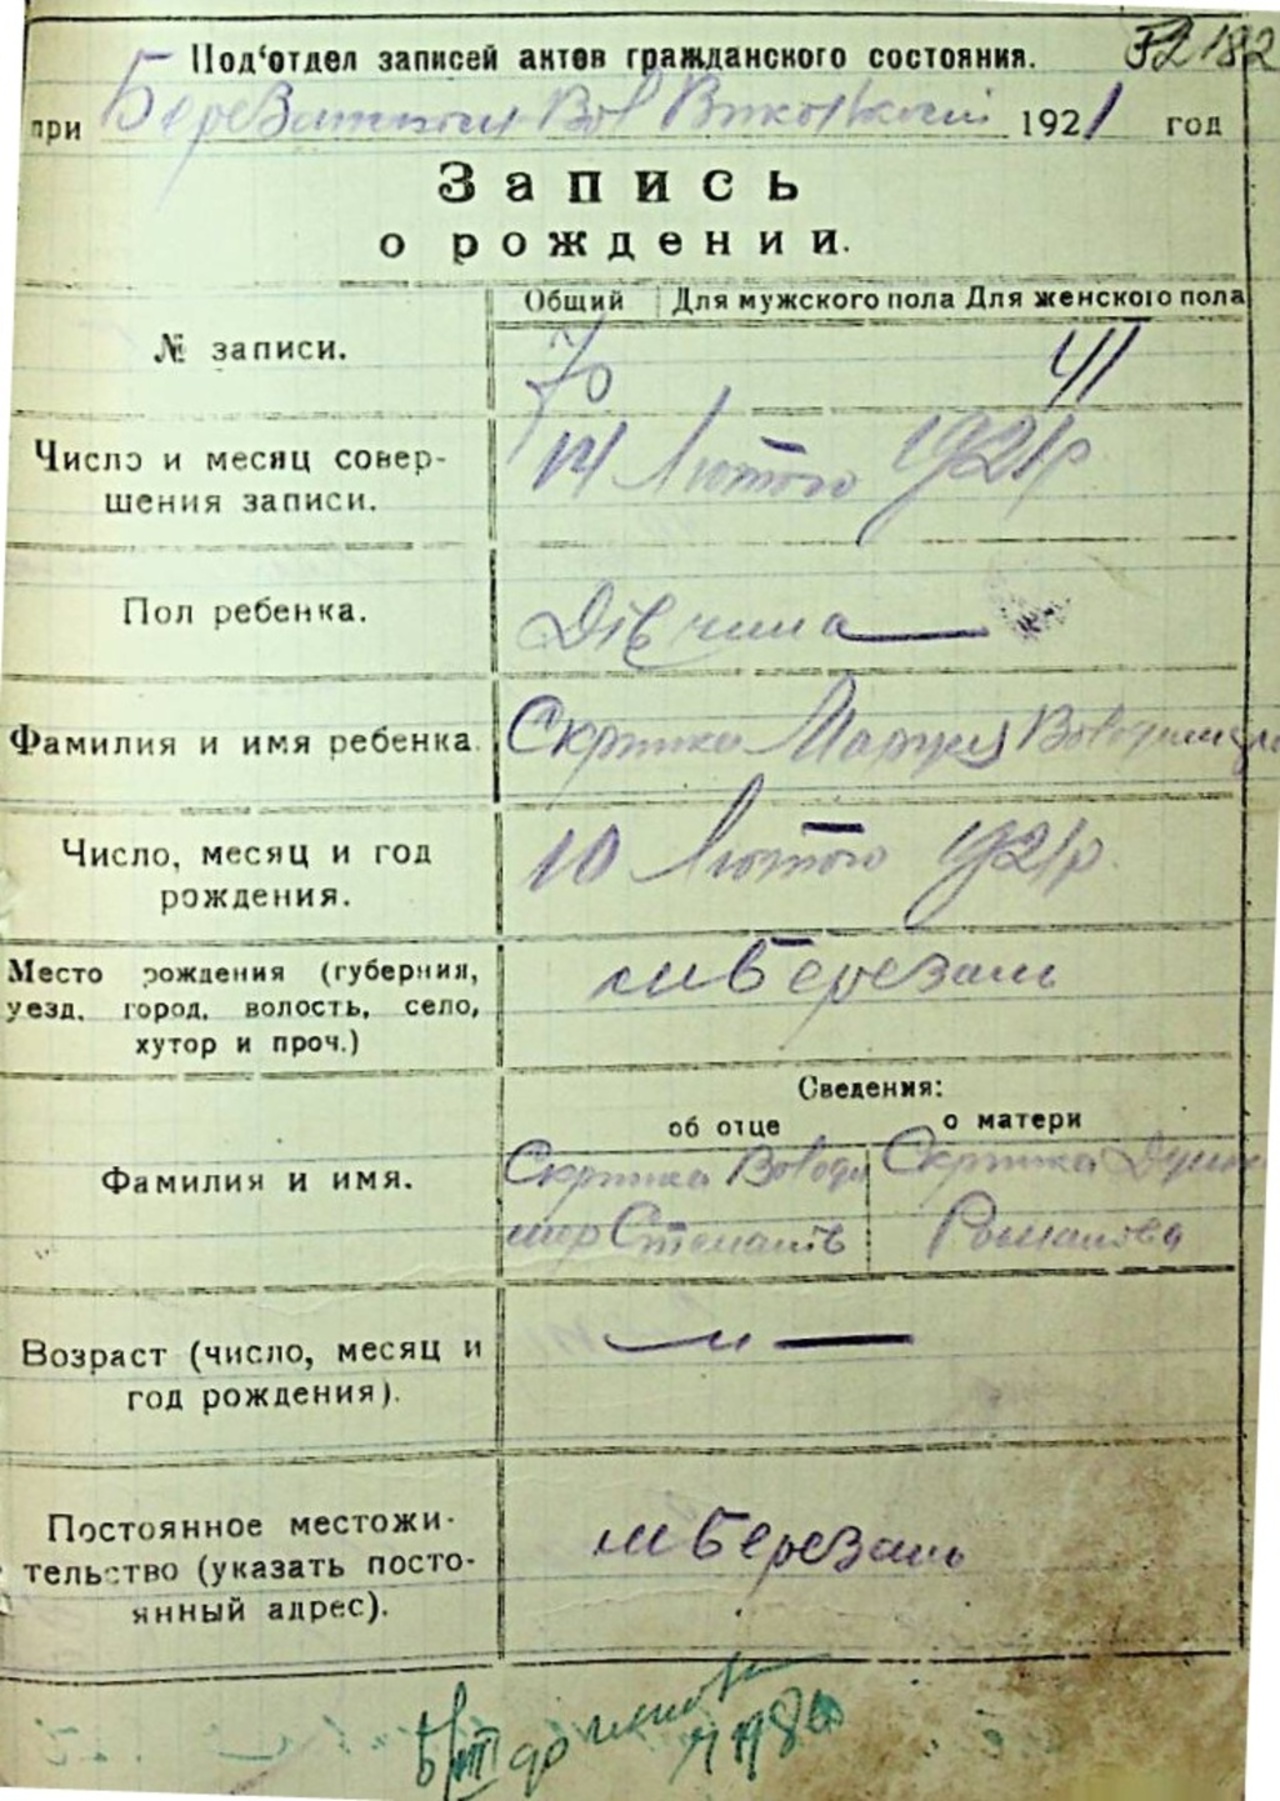 Под'отдел записей актов гражданского состояния. 182
при Вол 1921 год
Запись
о рождении.
Общий Для мужского пола Для женского пола
№ записи. 70 41
Число и месяц совер-
шения записи. 14 Лютого 1921р
Пол ребенка. Дівчина
Фамилия и имя ребенка. Скрипка Мария
Число, месяц и год
рождения. 10 Лютого 1921р.
Место рождения (губерния,
уезд, город, волость, село,
хутор и проч.) м Березань
Сведения:
об отце о матери
Фамилия и имя. Скрипка Володи Скрипка
мир Степанів Романова
Возраст (число, месяц и
год рождения). — " —
Постоянное местожи-
тельство (указать посто-
янный адрес). м Березань